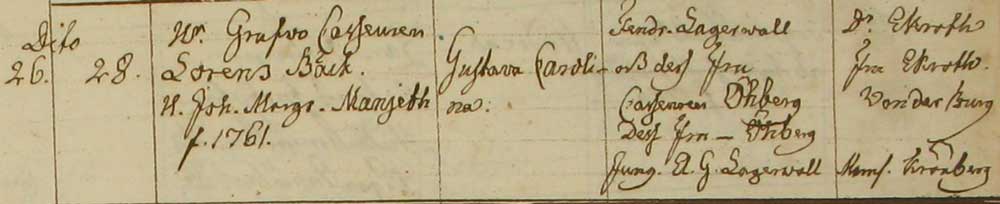 Dito
26.
28.
Hr. Grufwo Casseuren
Lorens Bäck.
H. Joh. Margr. Manjeth
f. 1761.
Gustava Caroli-
na:
Fendr. Lagerwall
och dess Fru
Casseuren Öhberg
Dess Fru - Öhberg
Jung. A. G. Lagerwall
Dr. Ekroth
Fru Ekroth.
Von der Burg
Mams. Krönberg